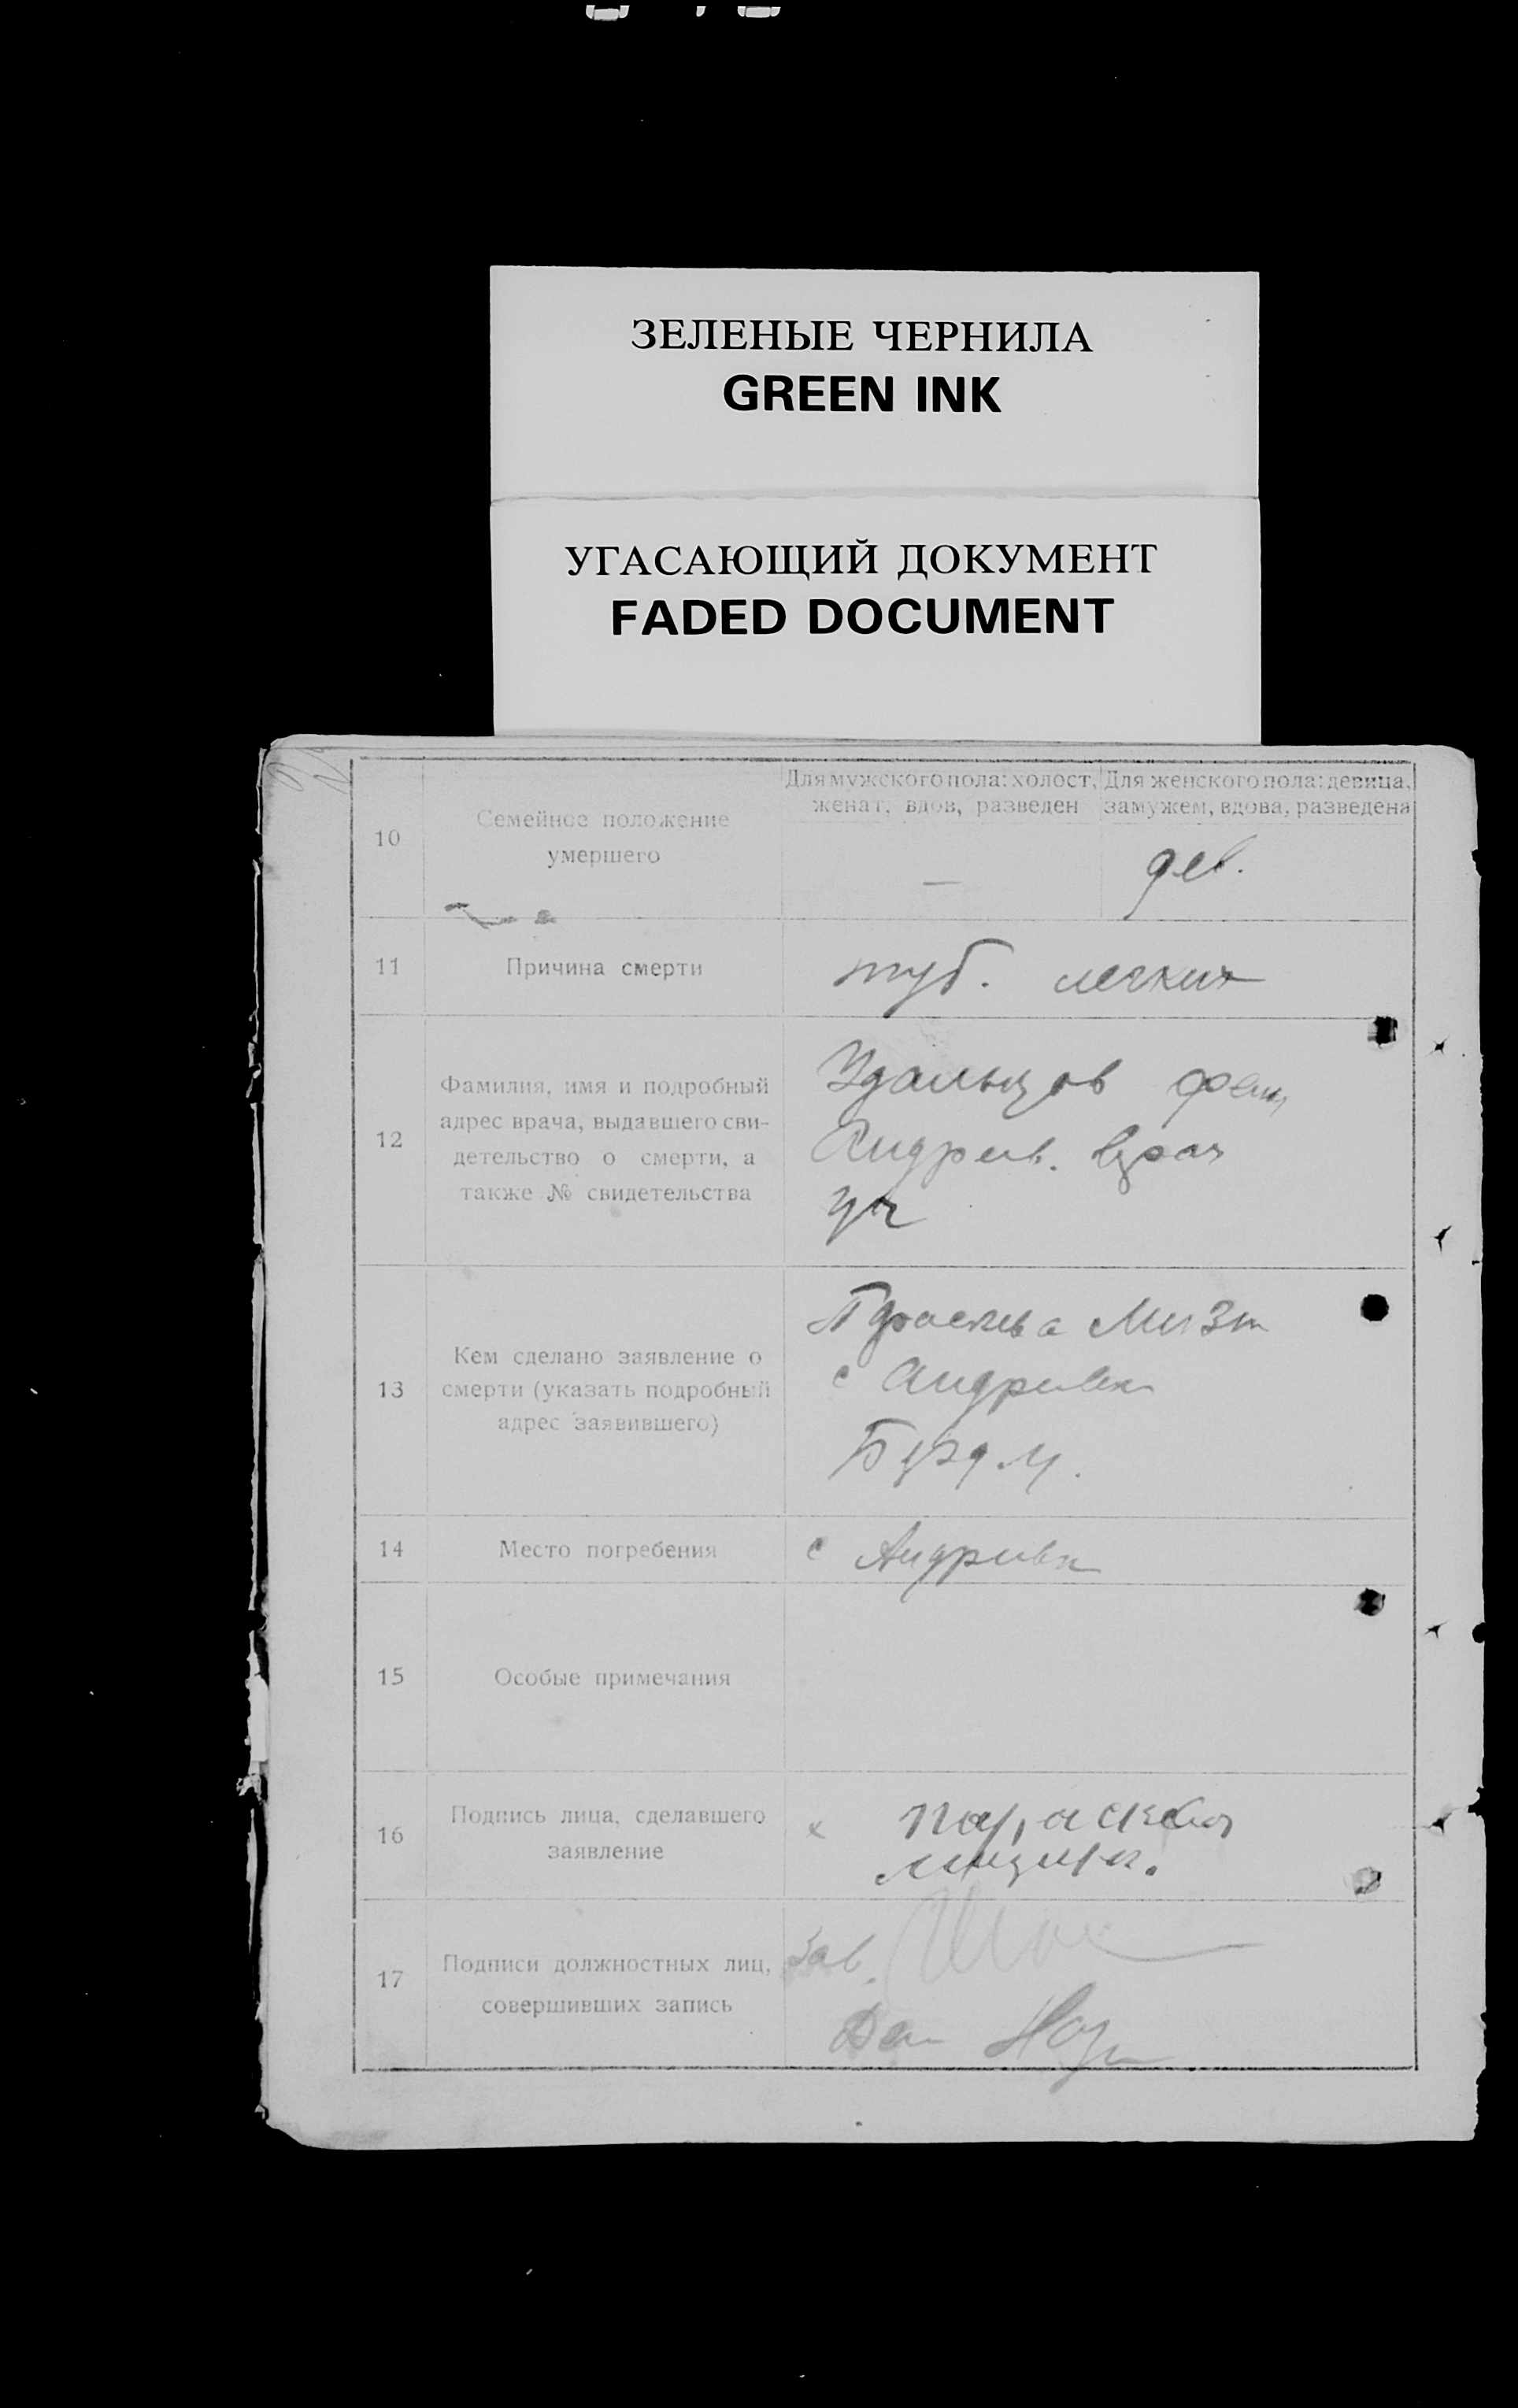 ЗЕЛЕНЫЕ ЧЕРНИЛА
GREEN INK
УГАСАЮЩИЙ ДОКУМЕНТ
FADED DOCUMENT
10
Семейное положение
умершего
Для мужского пола: холост,
женат, вдов, разведен
Для женского пола: девица,
замужем, вдова, разведена
—
дев.
11
Причина смерти
туб. легких
12
Фамилия, имя и подробный
адрес врача, выдавшего сви-
детельство о смерти, а
также № свидетельства
Удальцов
врач
уч
13
Кем сделано заявление о
смерти (указать подробный
адрес заявившего)
с
14
Место погребения
с
15
Особые примечания
16
Подпись лица, сделавшего
заявление
х
17
Подписи должностных лиц,
совершивших запись
Зав.